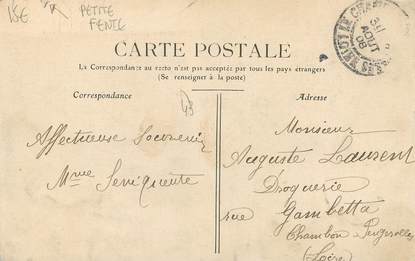 15E
PETITE
FENTE
CARTE POSTALE
La Correspondance au recto n'est pas acceptée par tous les pays étrangers
(Se renseigner à la poste)
Correspondance
Adresse
43
AOUT
08
Affectueuse Souvenir
Mme
Monsieur
Auguste Laurent
Droguerie
rue Gambetta
Chambon Feugerolles
(Loire)